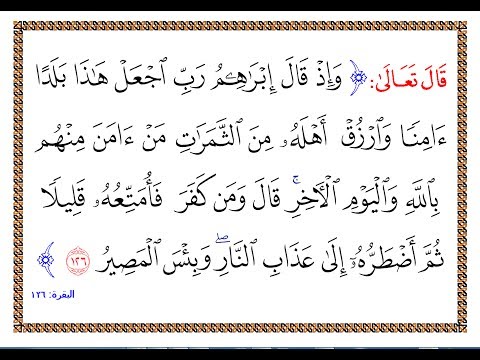 قَالَ تَعَالَىٰ: ﴿ وَإِذْ قَالَ إِبْرَٰهِـۧمُ رَبِّ ٱجْعَلْ هَٰذَا بَلَدًا
ءَامِنًا وَٱرْزُقْ أَهْلَهُۥ مِنَ ٱلثَّمَرَٰتِ مَنْ ءَامَنَ مِنْهُم
بِٱللَّهِ وَٱلْيَوْمِ ٱلْأٓخِرِۚ قَالَ وَمَن كَفَرَ فَأُمَتِّعُهُۥ قَلِيلًا
ثُمَّ أَضْطَرُّهُۥٓ إِلَىٰ عَذَابِ ٱلنَّارِۖ وَبِئْسَ ٱلْمَصِيرُ ١٢٦ ﴾
البقرة: ١٢٦